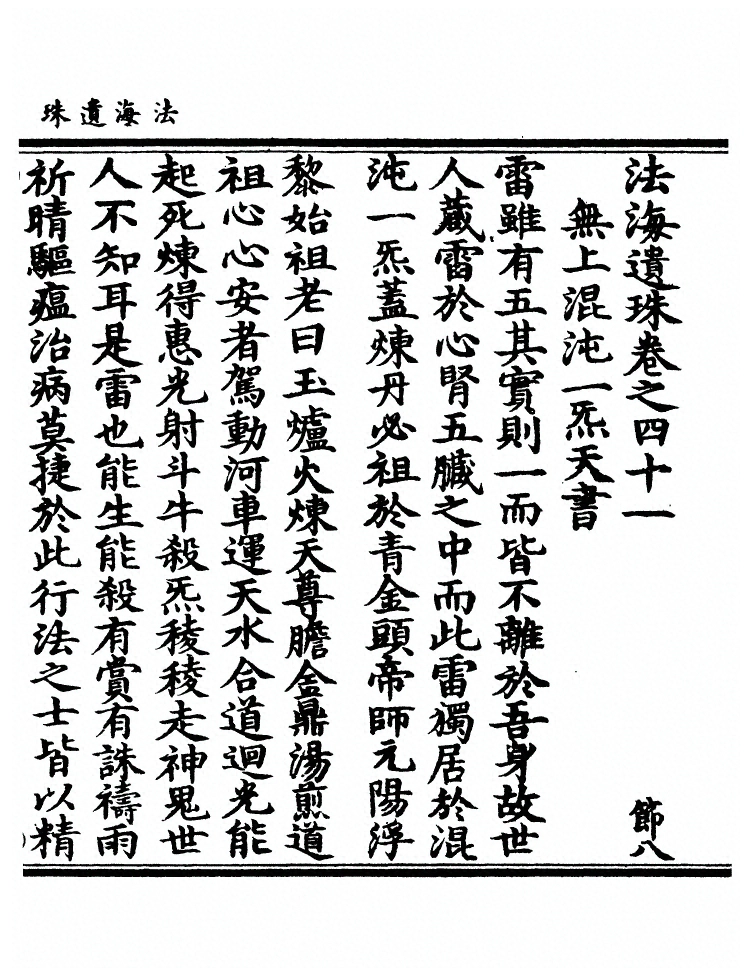 法海遺珠
法海遺珠卷之四十一
節八
無上混沌一炁天書
雷雖有五其實則一而皆不離於吾身故世
人藏雷於心腎五臟之中而此雷獨居於混
沌一炁蓋煉丹必祖於青金頭帝師元陽浮
黎始祖老曰玉爐火煉天尊膽金鼎湯煎道
祖心心安者駕動河車運天水合道迴光能
起死煉得惠光射斗牛殺炁稜稜走神鬼世
人不知耳是雷也能生能殺有賞有誅禱雨
祈晴驅瘟治病莫捷於此行法之士皆以精